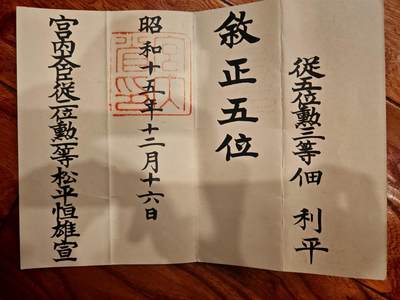 從五位勲三等佃 利平
敘正五位
昭和十五年十二月十六日
宮内大臣從二位勲一等松平恒雄宣